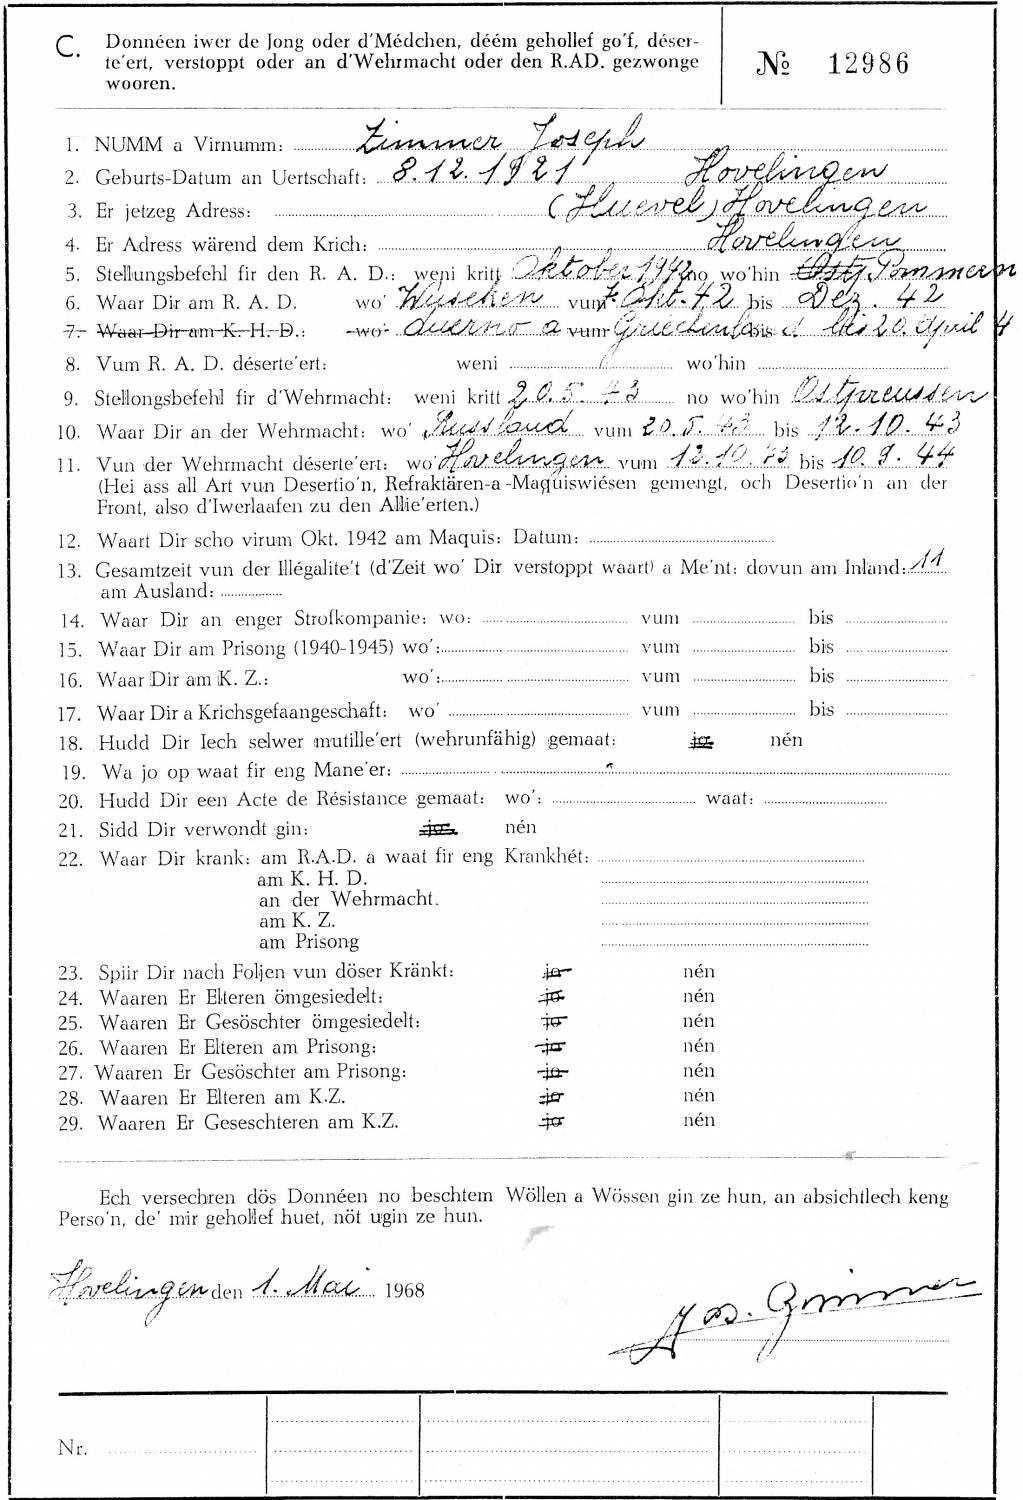 C. Donnéen iwer de Jong oder d'Médchen, déém gehollef go'f, déser-
te'ert, verstoppt oder an d'Wehrmacht oder den R.AD. gezwonge
wooren.
№ 12986
1. NUMM a Virnumm: Zimmer Joseph
2. Geburts-Datum an Uertschaft: 8.12.1921 Hovelingen
3. Er jetzeg Adress: (Huevel) Hovelingen
4. Er Adress wärend dem Krich: Hovelingen
5. Stellungsbefehl fir den R. A. D.: weni kritt Oktober 1942 no wo'hin Ostp. Pommern
6. Waar Dir am R. A. D. wo' vum 7. Okt. 42 bis Dez. 42
7. Waar Dir am K. H. D.: wo' a vum Griechenland bis bis 20. April 4
8. Vum R. A. D. déserte'ert: weni wo'hin
9. Stellongsbefehl fir d'Wehrmacht: weni kritt 20.5.43 no wo'hin Ostpreussen
10. Waar Dir an der Wehrmacht: wo' Russland vum 20.5.43 bis 12.10.43
11. Vun der Wehrmacht déserte'ert: wo' Hovelingen vum 12.10.43 bis 10.9.44
(Hei ass all Art vun Desertio'n, Refraktären-a -Maquiswiésen gemengt, och Desertio'n an der
Front, also d'Iwerlaafen zu den Allie'erten.)
12. Waart Dir scho virum Okt. 1942 am Maquis: Datum:
13. Gesamtzeit vun der Illégalite't (d'Zeit wo' Dir verstoppt waart) a Me'nt: dovun am Inland: 11
am Ausland:
14. Waar Dir an enger Strofkompanie: wo: vum bis
15. Waar Dir am Prisong (1940-1945) wo': vum bis
16. Waar Dir am K. Z.: wo': vum bis
17. Waar Dir a Krichsgefaangeschaft: wo' vum bis
18. Hudd Dir Iech selwer mutille'ert (wehrunfähig) gemaat: jo nén
19. Wa jo op waat fir eng Mane'er:
20. Hudd Dir een Acte de Résistance gemaat: wo': waat:
21. Sidd Dir verwondt gin: jo nén
22. Waar Dir krank: am R.A.D. a waat fir eng Krankhét:
am K. H. D.
an der Wehrmacht.
am K. Z.
am Prisong
23. Spiir Dir nach Foljen vun döser Kränkt: jo nén
24. Waaren Er Elteren ömgesiedelt: jo nén
25. Waaren Er Gesöschter ömgesiedelt: jo nén
26. Waaren Er Elteren am Prisong: jo nén
27. Waaren Er Gesöschter am Prisong: jo nén
28. Waaren Er Elteren am K.Z. jo nén
29. Waaren Er Geseschteren am K.Z. jo nén
Ech versechren dös Donnéen no beschtem Wöllen a Wössen gin ze hun, an absichtlech keng
Perso'n, de' mir gehollef huet, nöt ugin ze hun.
Hovelingen den 1. Mai 1968
Jos. Zimmer
Nr.